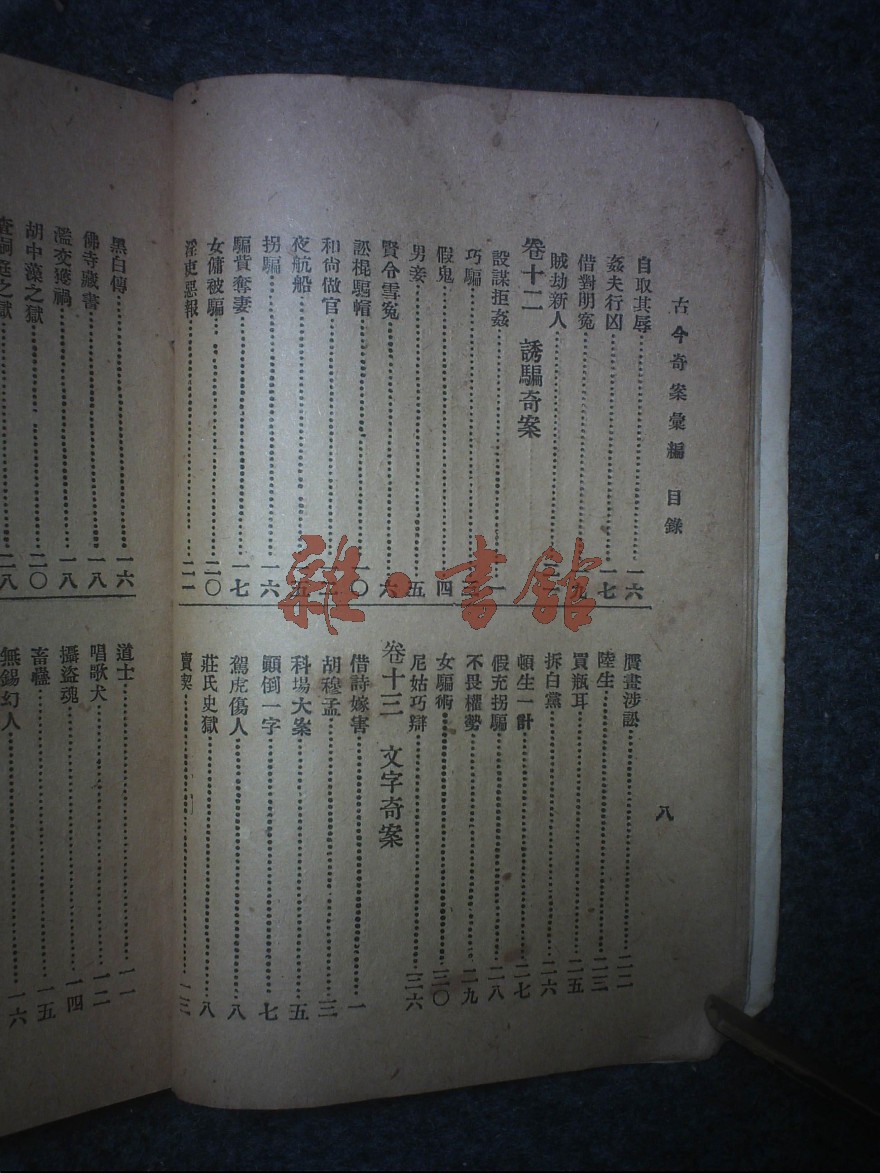 古今奇案彙編 目錄
八
自取其辱⋯⋯一六
姦夫行凶⋯⋯一七
借對明冤⋯⋯一九
賊劫新人
卷十二 誘騙奇案
設謀拒姦⋯⋯一
巧騙
假鬼⋯⋯四
男妾⋯⋯五
賢令雪冤⋯⋯六
訟棍騙帽⋯⋯一〇
和尚做官
夜航船
拐騙⋯⋯一六
騙貲奪妻⋯⋯一七
女傭被騙⋯⋯二〇
淫吏惡報⋯⋯二一
贋畫涉訟⋯⋯二二
陸生⋯⋯二三
買瓶耳⋯⋯二五
拆白黨⋯⋯二六
頓生一計⋯⋯二七
假充拐騙⋯⋯二八
不畏權勢⋯⋯二九
女騙術⋯⋯三〇
尼姑巧辯⋯⋯三六
卷十三 文字奇案
借詩嫁害⋯⋯一
胡穆孟⋯⋯三
科場大案⋯⋯五
顛倒一字⋯⋯七
駕虎傷人⋯⋯八
莊氏史獄⋯⋯八
賣契⋯⋯一三
黑白傳⋯⋯一六
佛寺藏書⋯⋯一八
濫交獲禍⋯⋯一八
胡中藻之獄⋯⋯二〇
查嗣庭之獄⋯⋯二八
道士⋯⋯一一
唱歌犬⋯⋯一二
攝盜魂⋯⋯一四
畜蠱⋯⋯一五
無錫幻人⋯⋯一六
雜·書館